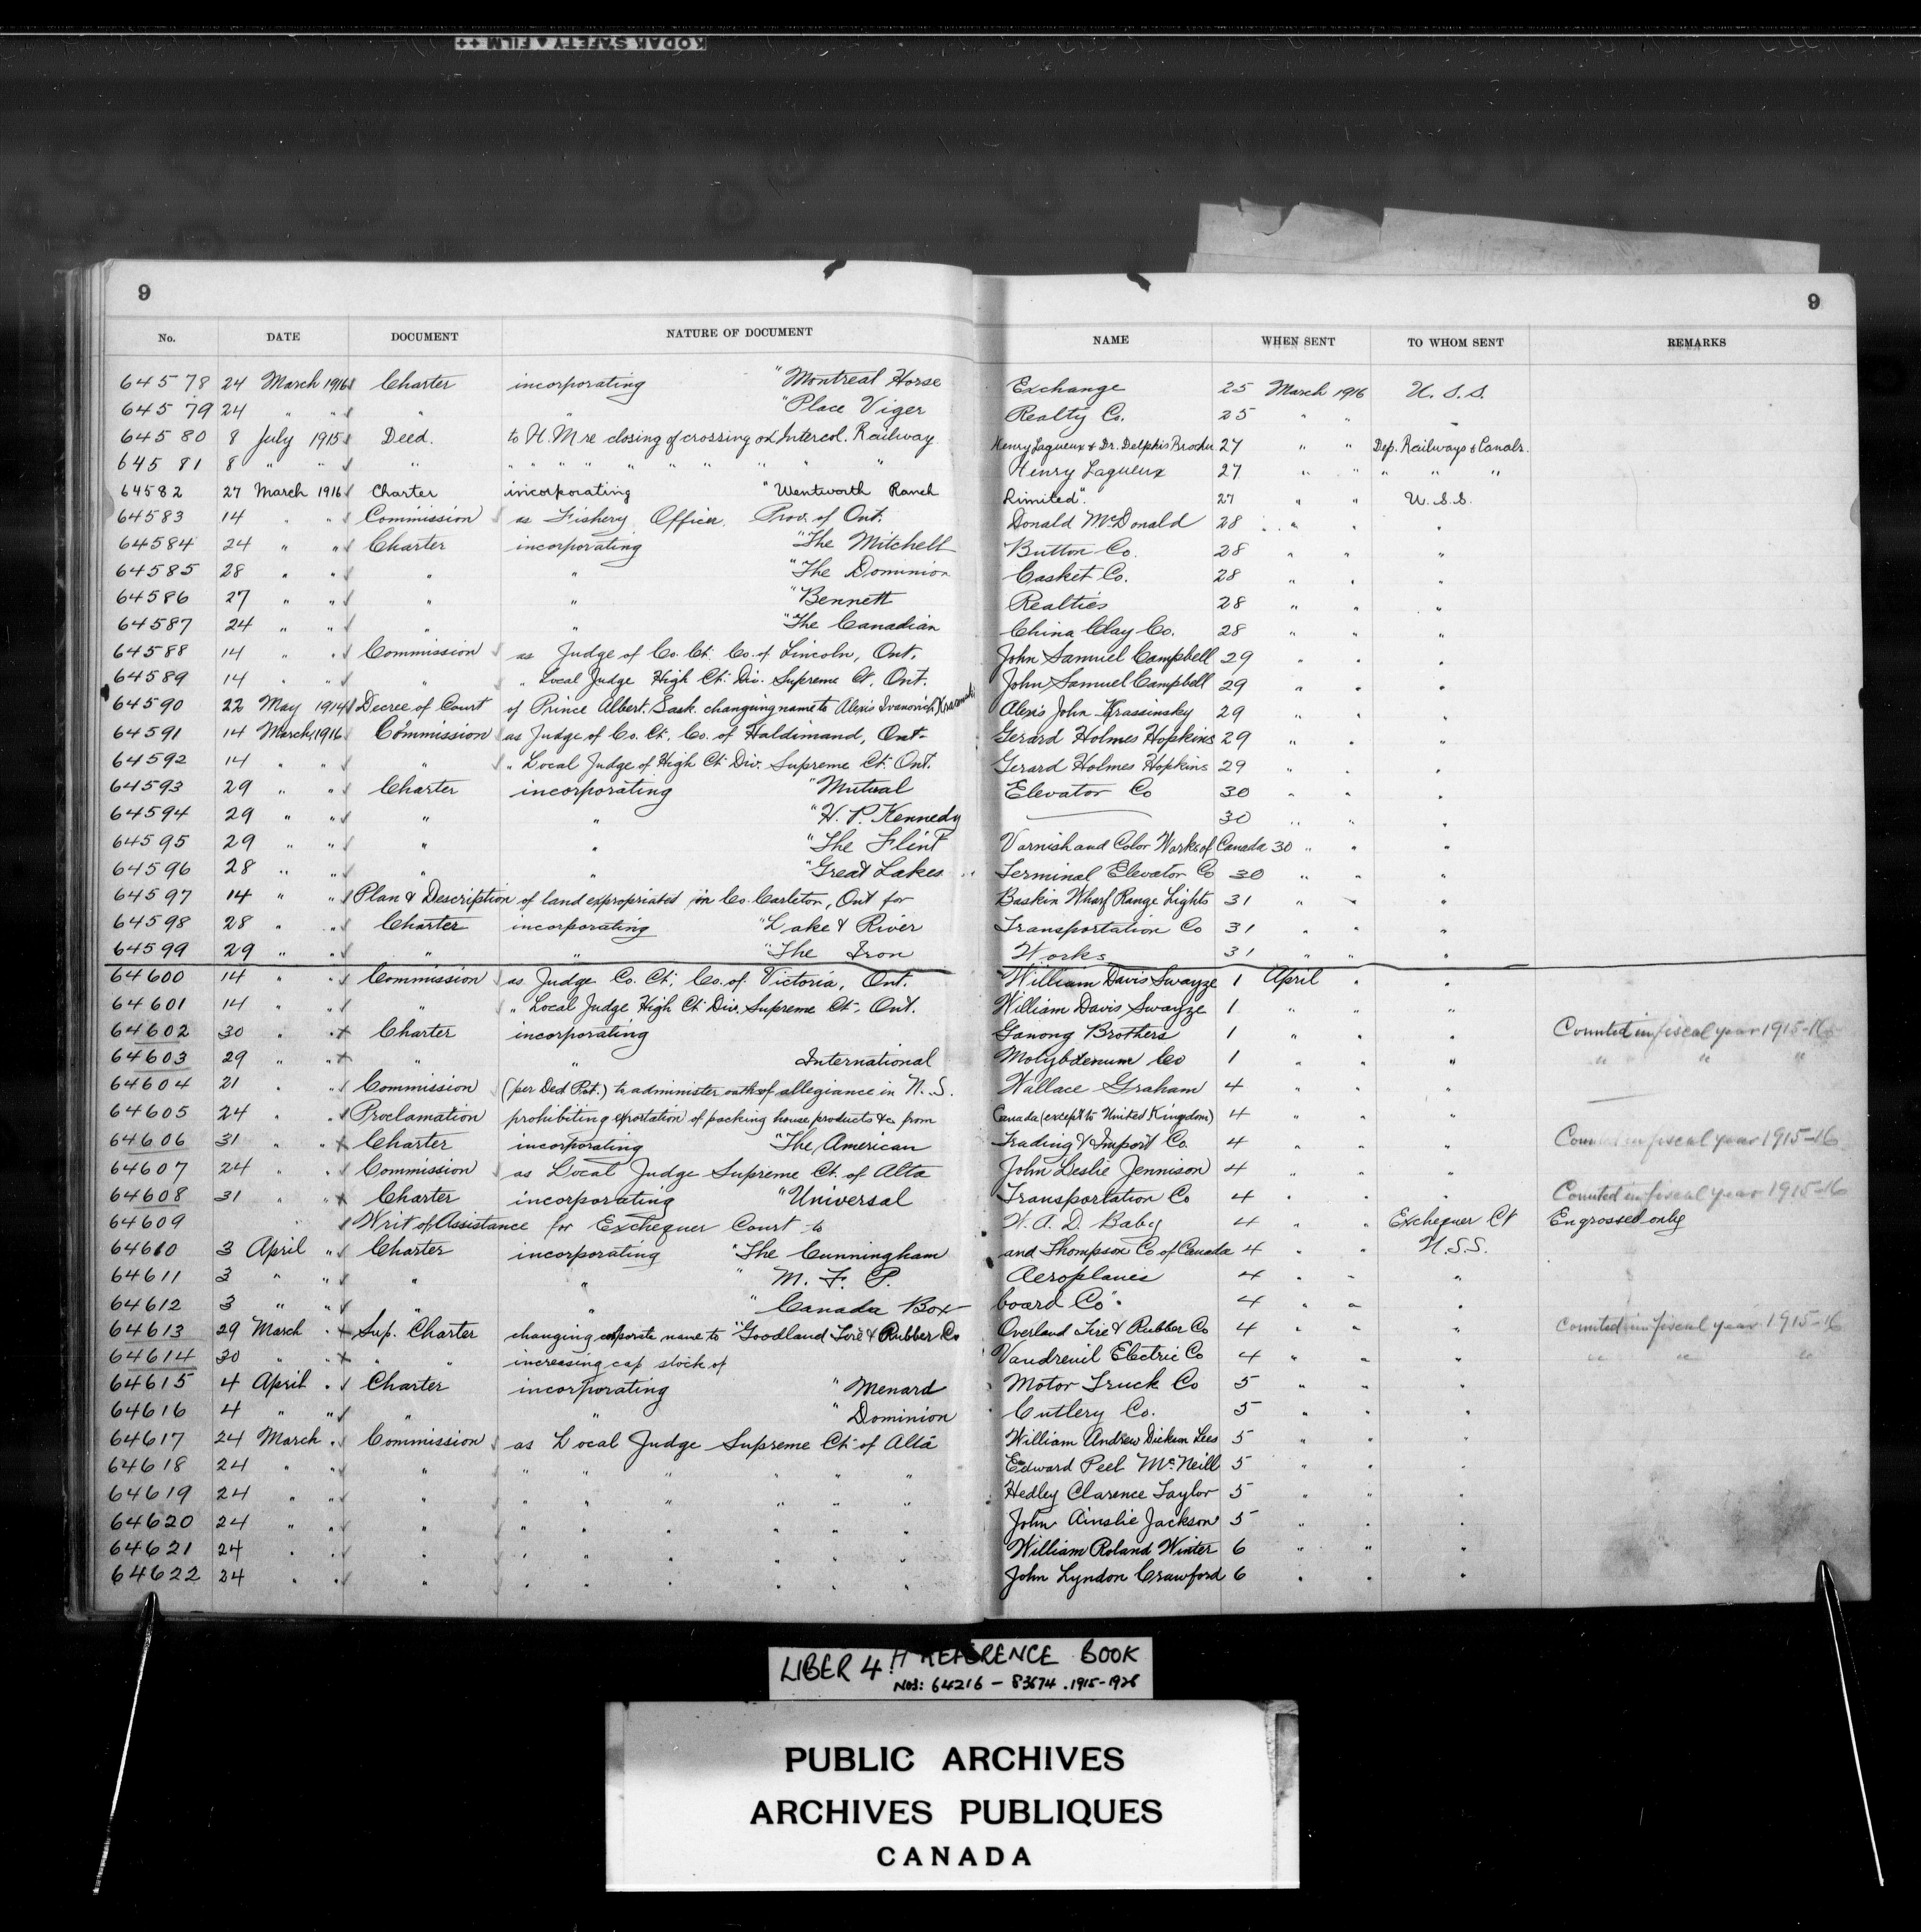 KODAK SAFETY FILM ++
9 9
No. DATE DOCUMENT NATURE OF DOCUMENT NAME WHEN SENT TO WHOM SENT REMARKS
64578 24 March 1916 Charter incorporating "Montreal Horse Exchange 25 March 1916 U.S.S.
64579 24 " " " " "Place Viger Realty Co. 25 " " "
64580 8 July 1915 Deed. to H.M. re closing of crossing on Intercol. Railway Henry Lagueux & Dr. Delphis Brochu 27 " " Dep. Railways & Canals.
64581 8 " " " " " " " " " " " " Henry Lagueux 27 " " " " "
64582 27 March 1916 Charter incorporating "Wentworth Ranch Limited". 27 " " U.S.S.
64583 14 " " Commission as Fishery Officer, Prov. of Ont. Donald McDonald 28 " " "
64584 24 " " Charter incorporating "The Mitchell Button Co. 28 " " "
64585 28 " " " " "The Dominion Casket Co. 28 " " "
64586 27 " " " " "Bennett Realties 28 " " "
64587 24 " " " " "The Canadian China Clay Co. 28 " " "
64588 14 " " Commission as Judge of Co. Ct. Co. of Lincoln, Ont. John Samuel Campbell 29 " " "
64589 14 " " " " Local Judge High Ct. Div. Supreme Ct, Ont. John Samuel Campbell 29 " " "
64590 22 May 1914 Decree of Court of Prince Albert, Sask. changing name to Alexis Ivanovich Alexis John Krassinsky 29 " " "
64591 14 March 1916 Commission as Judge of Co. Ct. Co. of Haldimand, Ont. Gerard Holmes Hopkins 29 " " "
64592 14 " " " " Local Judge of High Ct Div. Supreme Ct. Ont. Gerard Holmes Hopkins 29 " " "
64593 29 " " Charter incorporating "Mutual Elevator Co 30 " " "
64594 29 " " " " "H. P. Kennedy 30 " " "
64595 29 " " " " "The Flint Varnish and Color Works of Canada 30 " " "
64596 28 " " " " "Great Lakes Terminal Elevator Co 30 " " "
64597 14 " " Plan & Description of land expropriated in Co. Carleton, Ont for Baskin Wharf Range Lights 31 " " "
64598 28 " " Charter incorporating "Lake & River Transportation Co 31 " " "
64599 29 " " " " "The Iron Works 31 " " "
64600 14 " " Commission as Judge Co. Ct. Co. of Victoria, Ont. William Davis Swayze 1 April " "
64601 14 " " " " Local Judge High Ct Div. Supreme Ct. Ont. William Davis Swayze 1 " " "
64602 30 " " Charter incorporating Ganong Brothers 1 " " " Counted in fiscal year 1915-16
64603 29 " " " " International Molybdenum Co 1 " " " " " "
64604 21 " " Commission (per Ded Pot.) to administer oath of allegiance in N.S. Wallace Graham 4 " " "
64605 24 " " Proclamation prohibiting exportation of packing house products &c from Canada (except to United Kingdom) 4 " " "
64606 31 " " Charter incorporating "The American Trading & Import Co. 4 " " " Counted in fiscal year 1915-16
64607 24 " " Commission as Local Judge Supreme Ct. of Alta John Leslie Jennison 4 " " "
64608 31 " " Charter incorporating "Universal Transportation Co 4 " " " Counted in fiscal year 1915-16
64609 " Writ of Assistance for Exchequer Court to W. A. D. Baby 4 " " Exchequer Ct Engrossed only
64610 3 April " Charter incorporating "The Cunningham and Thompson Co of Canada 4 " " U.S.S.
64611 3 " " " " " M. F. P. Aeroplanes 4 " " "
64612 3 " " " " " Canada Box board Co". 4 " " "
64613 29 March " Sup. Charter changing corporate name to "Goodland Tire & Rubber Co Overland Tire & Rubber Co 4 " " " Counted in fiscal year 1915-16
64614 30 " " " " increasing cap stock of Vaudreuil Electric Co 4 " " " " " "
64615 4 April " Charter incorporating " Menard Motor Truck Co 5 " " "
64616 4 " " " " " Dominion Cutlery Co. 5 " " "
64617 24 March " Commission as Local Judge Supreme Ct. of Alta William Andrew Dickson Lees 5 " " "
64618 24 " " " " " " " " " Edward Peel McNeill 5 " " "
64619 24 " " " " " " " " " Hedley Clarence Taylor 5 " " "
64620 24 " " " " " " " " " John Ainslie Jackson 5 " " "
64621 24 " " " " " " " " " William Roland Winter 6 " " "
64622 24 " " " " " " " " " John Lyndon Crawford 6 " " "
LIBER 4 H REFERENCE BOOK
NOS: 64216 - 83674 . 1915-1926
PUBLIC ARCHIVES
ARCHIVES PUBLIQUES
CANADA